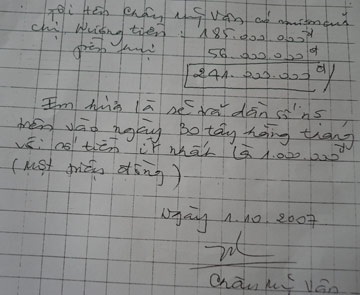 Tôi tên Châu Mỹ Vân có mượn của
chị Hương tiền : 185.000.000đ
56.000.000đ
241.000.000đ
Em hứa là sẽ trả dần số nợ
trên vào ngày 30 tây hàng tháng
với số tiền ít nhất là 1.000.000đ
(Một triệu đồng)
Ngày 1.10.2007
Châu Mỹ Vân